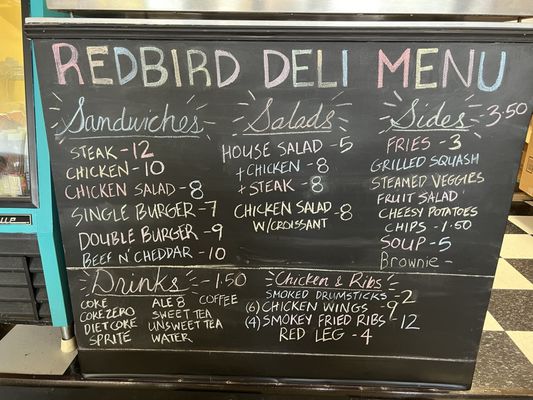 REDBIRD DELI MENU
Sandwiches
STEAK - 12
CHICKEN - 10
CHICKEN SALAD - 8
SINGLE BURGER - 7
DOUBLE BURGER - 9
BEEF N' CHEDDAR - 10
Salads
HOUSE SALAD - 5
+ CHICKEN - 8
+ STEAK - 8
CHICKEN SALAD - 8
W/CROISSANT
Sides - 3.50
FRIES - 3
GRILLED SQUASH
STEAMED VEGGIES
FRUIT SALAD
CHEESY POTATOES
CHIPS - 1.50
SOUP - 5
Brownie -
Drinks - 1.50
COKE ALE 8 COFFEE
COKE ZERO SWEET TEA
DIET COKE UNSWEET TEA
SPRITE WATER
Chicken & Ribs
SMOKED DRUMSTICKS - 2
(6) CHICKEN WINGS - 9
(4) SMOKEY FRIED RIBS - 12
RED LEG - 4